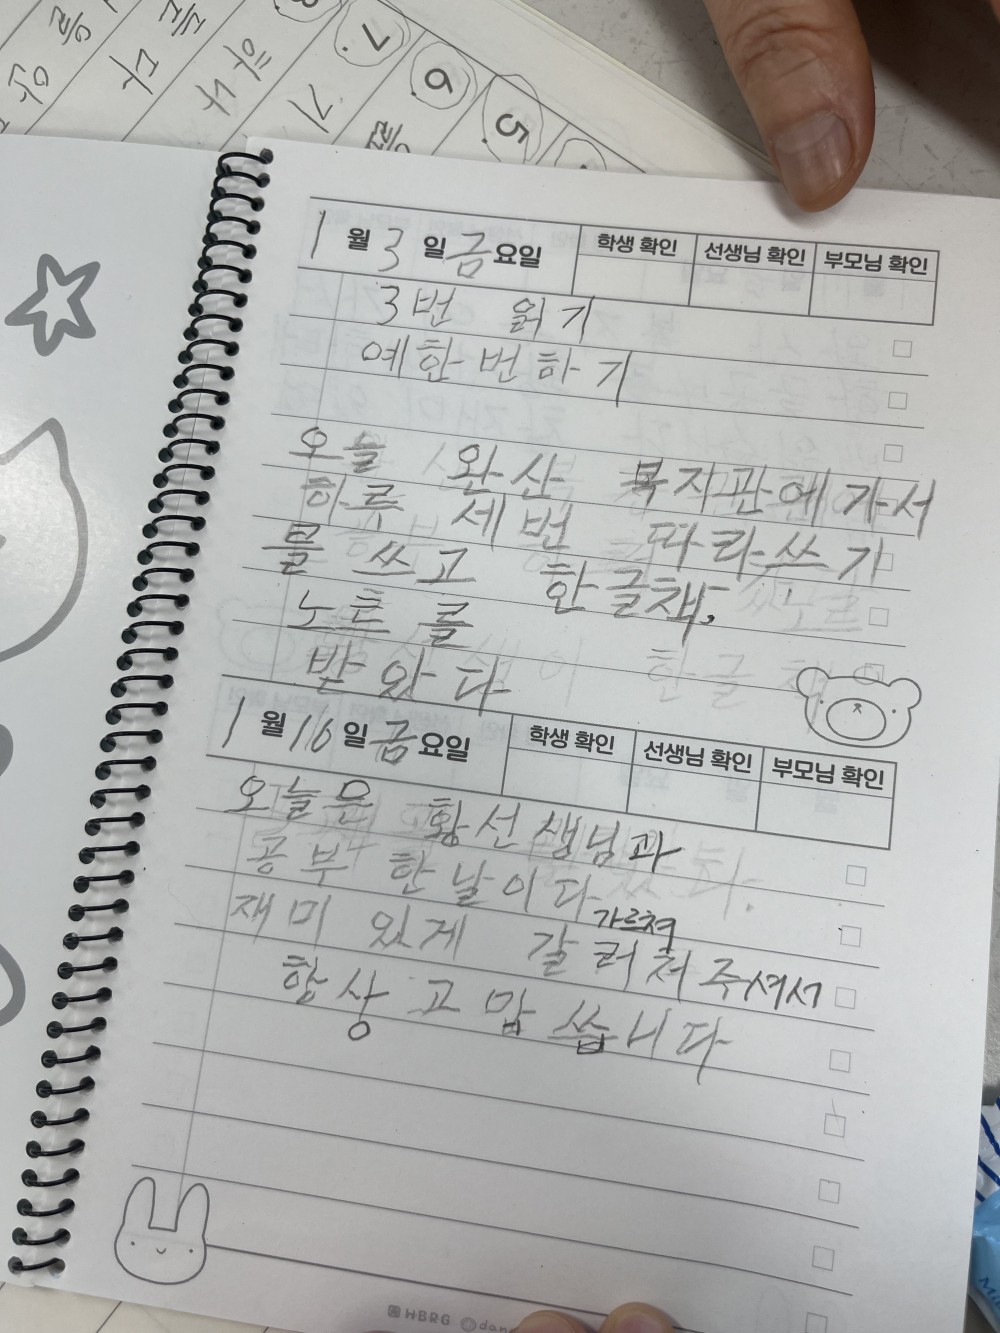 7.
6.
5.
1 월 3 일 금 요일 학생 확인 선생님 확인 부모님 확인
3번 읽기
예한번하기
오늘 완산 복지관에가서
하루 세번 따라쓰기
를 쓰고 한글책,
노트를
받았다
1 월 16 일 금 요일 학생 확인 선생님 확인 부모님 확인
오늘은 황선생님과
공부 한날이다
가르쳐
재미 있게 갈러처주셔서
항상 고맙씁니다
HBRG